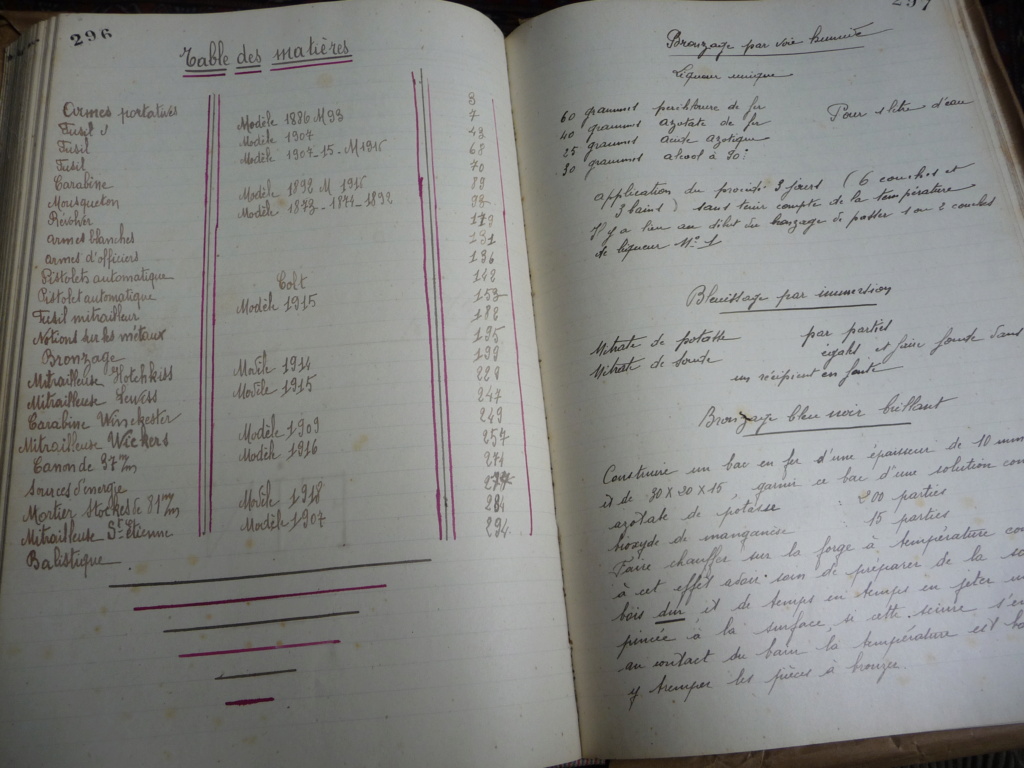 296
Table des matières
Armes portatives 3
Fusil Modèle 1886 M 93 7
Fusil Modèle 1907 48
Fusil Modèle 1907-15-M 1916 68
Carabine 70
Mousqueton Modèle 1892 M 1916 89
Révolver Modèle 1873-1874-1892
Armes blanches
Armes d'officiers 131
Pistolets automatique 136
Pistolet automatique Colt 142
Fusil mitrailleur Modèle 1915 153
Notions sur les métaux 182
Bronzage 195
Mitrailleuse Hotchkiss Modèle 1914 199
Mitrailleuse Lewiss Modèle 1915 229
Carabine Winchester 247
Mitrailleuse Wickers Modèle 1909 249
Canon de 37 m/m Modèle 1916 257
Sources d'énergie 271
Mortier Stockes de 81 m/m Modèle 1918
Mitrailleuse St Etienne Modèle 1907 281
Balistique 294
297
Bronzage par voie humide
Liqueur unique
60 grammes perchlorure de fer Pour 1 litre d'eau
40 grammes azotate de fer
25 grammes acide azotique
30 grammes alcool à 90°
application du procédé 3 jours (6 couches et
3 bains) sans tenir compte de la température
Il y a lieu au début du bronzage de passer 1 ou 2 couches
de liqueur N° 1
Bleuissage par immersion
Nitrate de potasse par parties
Nitrate de soude égales et faire fondre dans
un récipient en fonte
Bronzage bleu noir brillant
Construire un bac en fer d'une épaisseur de 10 mm
et de 30 x 20 x 15, garnir ce bac d'une solution
azotate de potasse 200 parties
bioxyde de manganèse 15 parties
Faire chauffer sur la forge à température
à cet effet avoir soin de préparer de la
bois dur et de temps en temps en jeter
pincée à la surface, si cette sciure s'en
au contact du bain la température est
y tremper les pièces à bronzer.